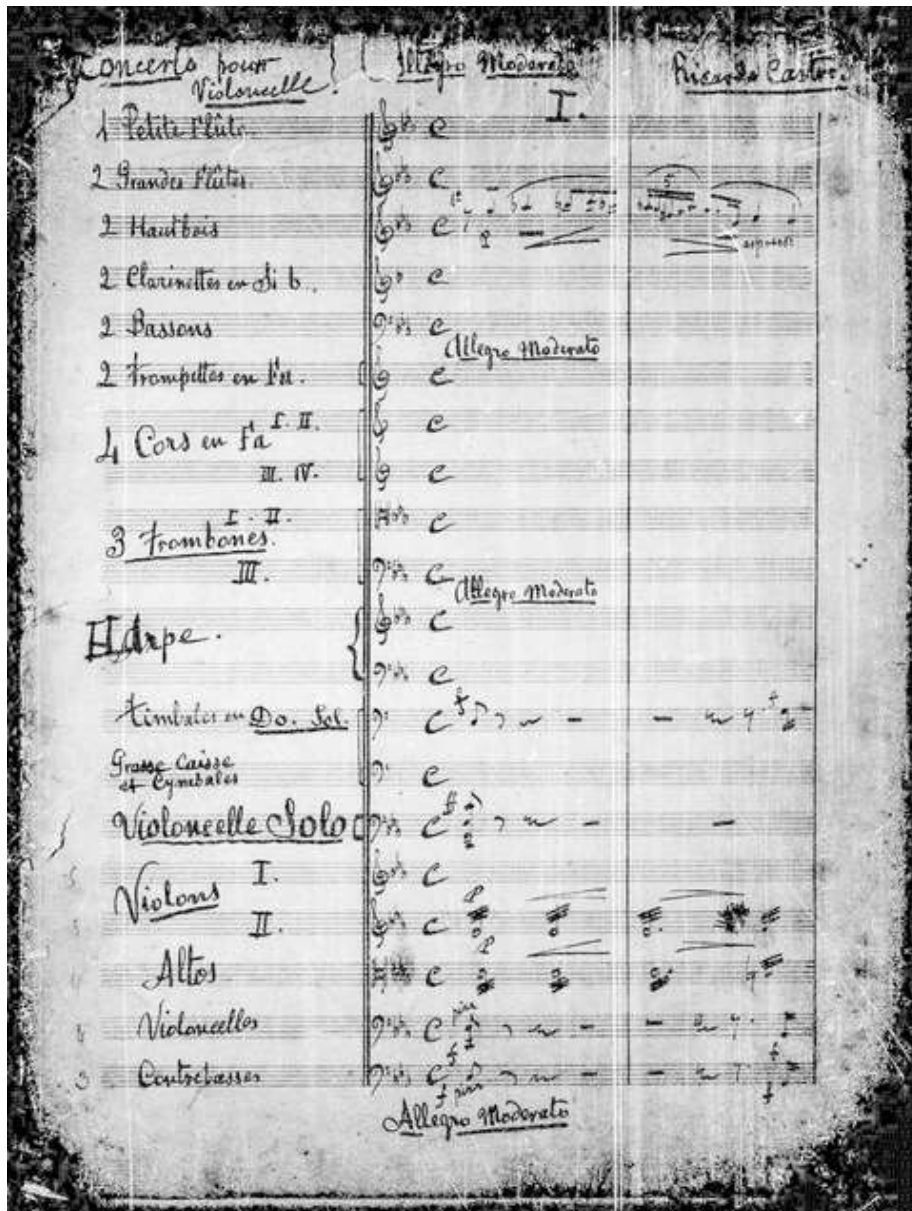 Concerto pour Violoncelle.
Allegro Moderato
Ricardo Castro.
I.
1 Petite Flûte.
2 Grandes Flûtes.
2 Hautbois
1º
5
p
espress
2 Clarinettes en Si b.
2 Bassons
Allegro Moderato
2 Trompettes en Fa.
4 Cors en Fa I. II.
III. IV.
3 Trombones. I. II.
III.
Allegro Moderato
Harpe.
Timbales en Do. Sol.
f
f
Grosse Caisse
et Cymbales
Violoncelle Solo
ff
Violons I.
p
II.
p
Altos
Violoncelles
f
f
Contrebasses
f
f
Allegro Moderato